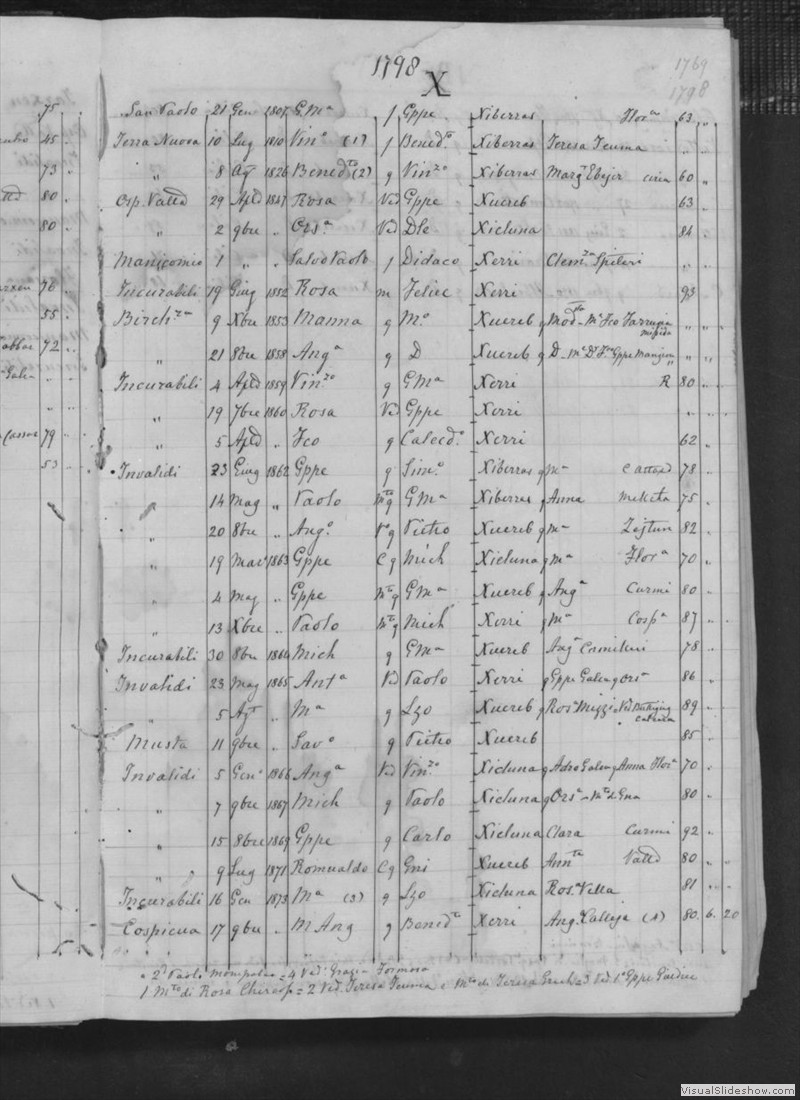 1798
X
1769
1798
San Paolo 21 Gen 1807 G Mª f Gppe Xiberras Florª 63 "
Terra Nuova 10 Lug 1810 Vinº (1) f Bened.º Xiberras Teresa Teuma "
" 8 Ag.º 1826 Bened.ta (2) g Vinzº Xiberras Marg.ª Ebejer circa 60 "
Osp. Valtta 29 Aple 1847 Rosa Ved Gppe Xuereb 63 "
" 2 9bre " Orsª Ved Dle Xicluna 84 "
Manicomio 1 " " Salvo Paolo f Didaco Xerri Clemza Spiteri " "
Incurabili 19 Giug 1852 Rosa m Felice Xerri 93
Birchª 9 Xbre 1853 Manna g Mº Xuereb g " " "
" 21 8bre 1858 Angª g D Xuereb g D " "
Incurabili 4 Aple 1859 Vinzº g G Mª Xerri R 80 "
" 19 7bre 1860 Rosa Ved Gppe Xerri " "
" 5 Aple " Fco g Calcedº Xerri 62 "
Invalidi 23 Giug 1862 Gppe g Simº Xiberras g Mª Cattad 78 "
" 14 Mag " Paolo Mto g G Mª Xiberras g Anna Meleta 75 "
" 20 8bre " Angº Vº g Pietro Xuereb g Mª Zejtun 82 "
" 19 Mar 1863 Gppe C g Mich Xicluna g Mª Florª 70 "
" 4 Mag " Gppe Mto g G Mª Xuereb g Angª Curmi 80 "
" 13 Xbre " Paolo Mto g Mich Xerri g Mª Cospª 87 "
Incurabili 30 8bre 1864 Mich g G Mª Xuereb Angª Camileri 78 "
Invalidi 23 Mag 1865 Antª Vd Paolo Xerri g Gppe Galea g Orsª 86 "
" 5 Agº " Mª g Lzo Xuereb g Rosª Mizzi 89 "
Musta 11 9bre " Savº g Pietro Xuereb 85 "
Invalidi 5 Genº 1866 Angª Ved Vinzº Xicluna g Galea g Anna Florª 70 "
" 7 9bre 1867 Mich g Paolo Xicluna g Orsª 80 "
" 15 8bre 1869 Gppe g Carlo Xicluna Clara Curmi 92 "
" 9 Lug 1871 Romualdo C g Gni Xuereb Annta Valtta 80 " "
Incurabili 16 Gen 1873 Mª (3) g Lzo Xicluna Rosª Vella 81 " "
Cospicua 17 9bre " M Ang g Bened.to Xerri Angª Calleja (4) 80 6 20
2º Paolo = 4 Vedª Grazia Formosa
1 Mto di Rosa Chircop = 2 Ved. Teresa Teuma e Mto di Teresa = 3 Ved 1ª Gppe
75
45
73
80
80
76
55
72
79
53
VisualSlideshow.com